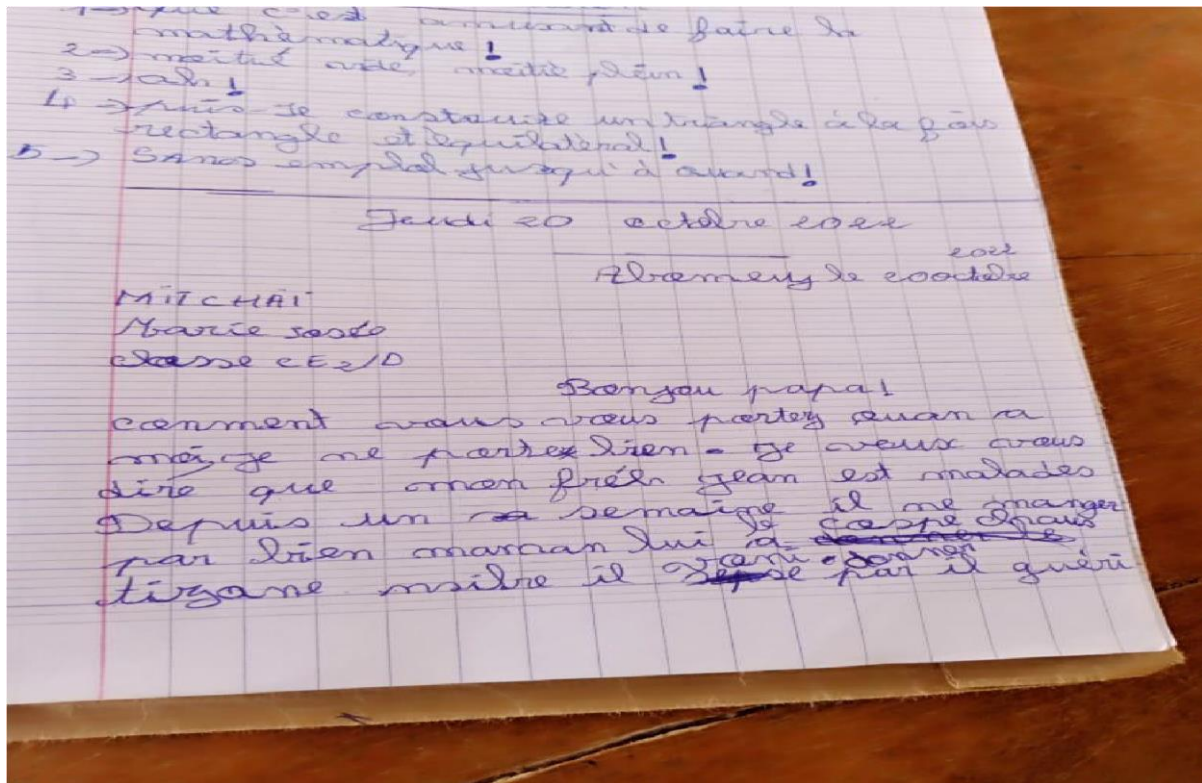 1 → que c'est amusant de faire la
mathématique !
2 → moitié vide, moitié plein !
3 → ah !
4 → puis-je construire un triangle à la fois
rectangle et équilatéral !
5 → SANOS emploi jusqu'à quand !
Jeudi 20 octobre 2022
2022
Abomey le 20 octobre
MITCHAÏ
Marie josée
classe CE2/D
Bonjou papa !
comment vous vous portez quan a
moi je ne porte bien - je veux vous
dire que mon frér jean est malades
Depuis un semaine il ne manger
par bien maman lui a
tizane il par il guéri